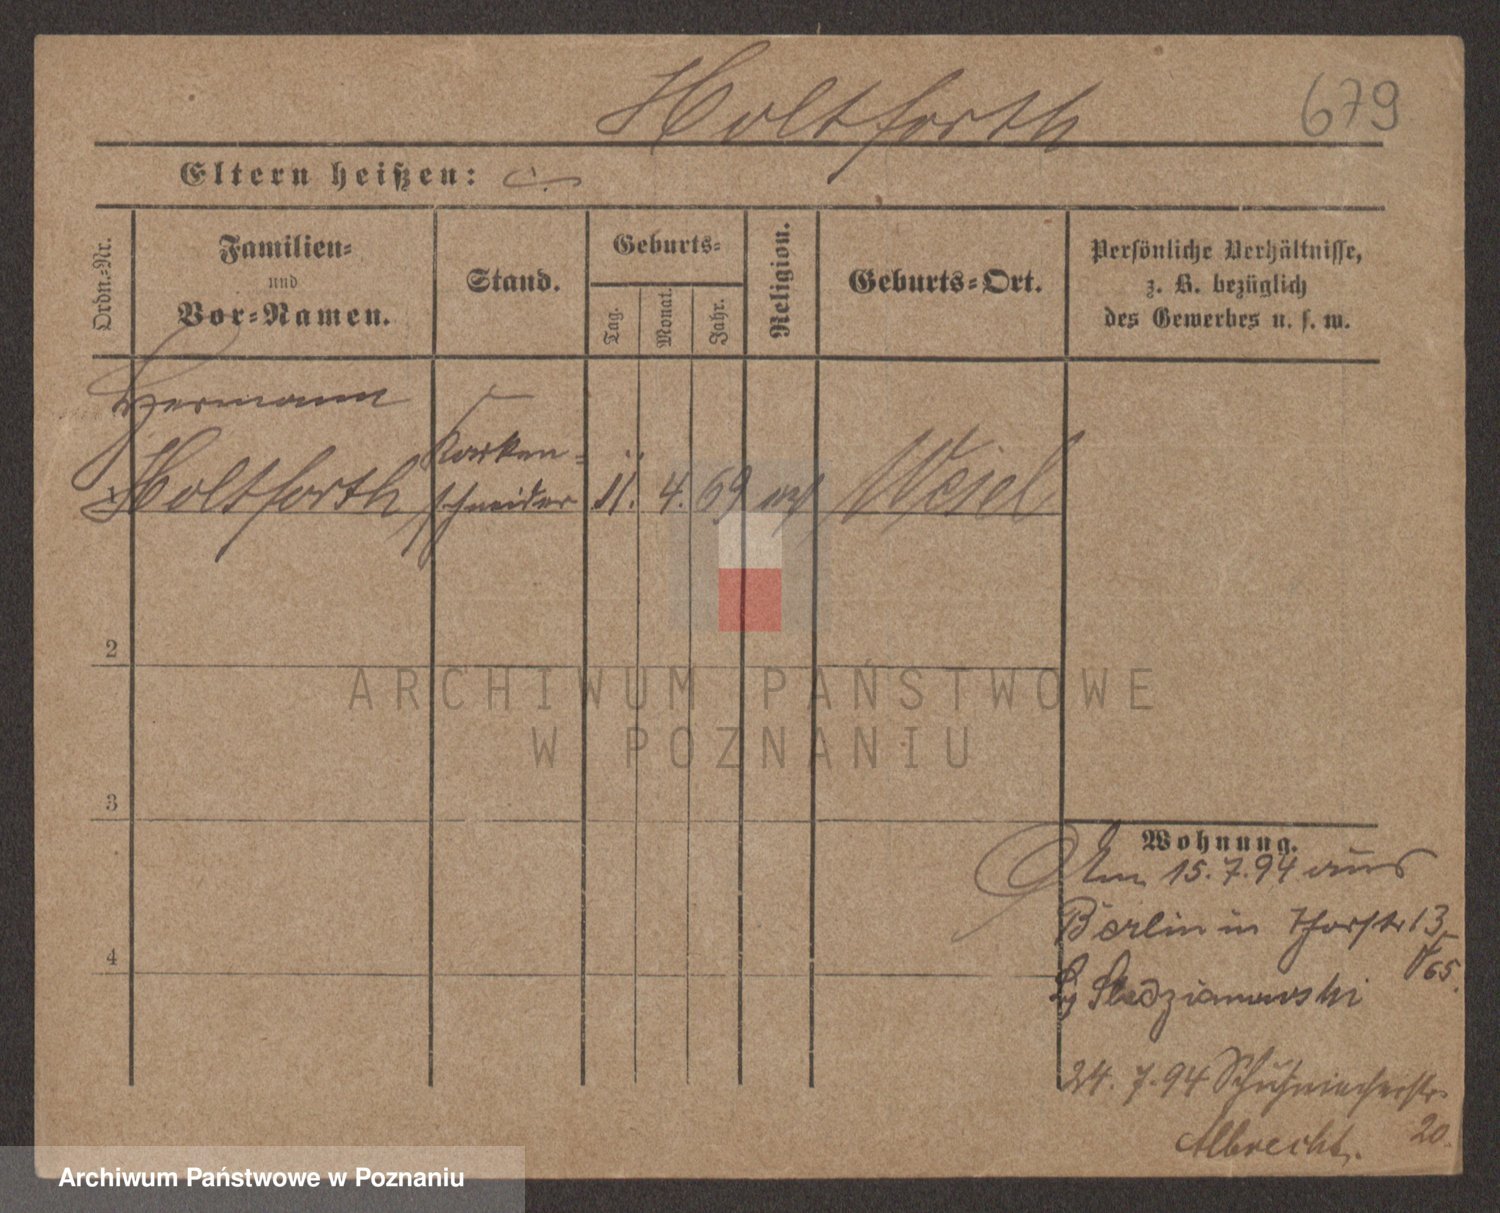 Holtforth
679
Eltern heißen:
Ordn.-Nr.
Familien-
und
Vor-Namen.
Stand.
Geburts-
Tag.
Monat.
Jahr.
Religion.
Geburts-Ort.
Persönliche Verhältnisse,
z. B. bezüglich
des Gewerbes u. s. w.
Hermann
Holtforth
Korken-
schneider
11. 4. 69
Wesel
2
3
4
Wohnung.
Am 15.7.94 aus
Berlin in Thorstr 13
Sledzianowski
24. 7. 94 Schuhmacherstr.
20.
Albrecht.
ARCHIWUM PAŃSTWOWE
W POZNANIU
Archiwum Państwowe w Poznaniu